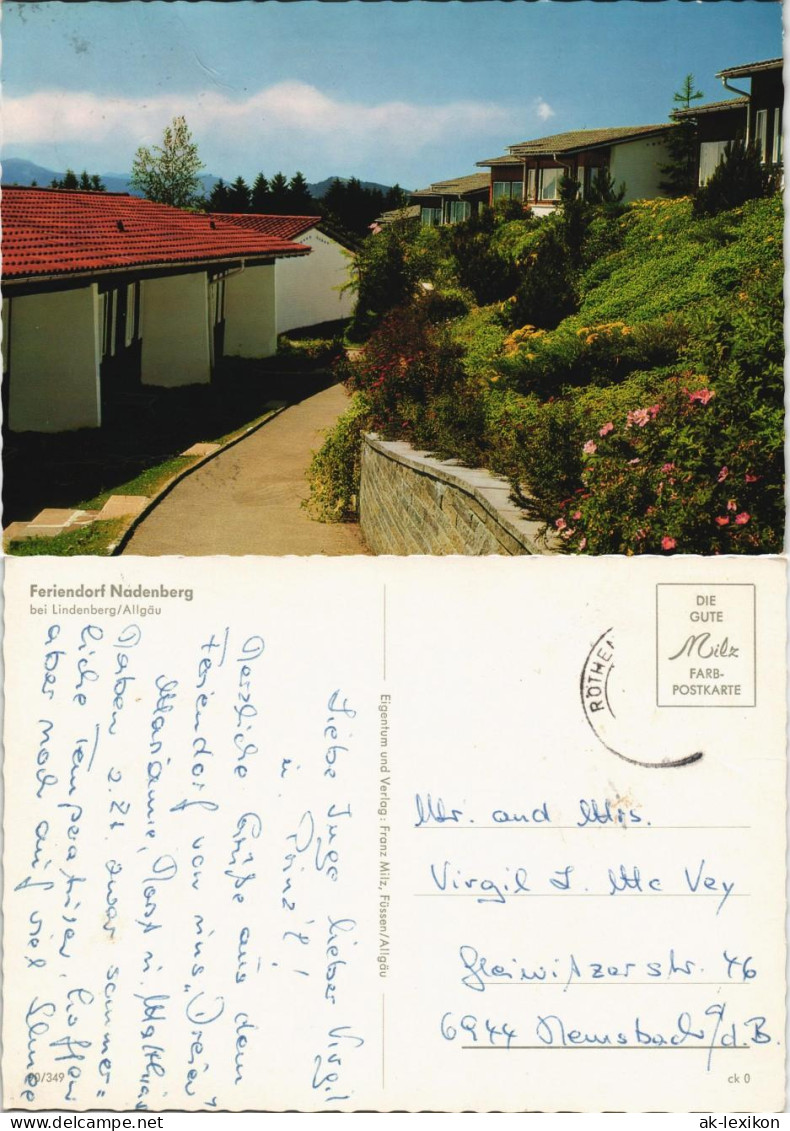 Feriendorf Nadenberg
bei Lindenberg/Allgäu
Liebe Inge lieber Virgil
u. Prinz'l!
Herzliche Grüße aus dem
Feriendorf von uns „Dreien"
Marianne, Horst u. Matthias
Haben z.Zt. zwar sommer=
liche Temperaturen, hoffen
aber noch auf viel
90/349
Eigentum und Verlag: Franz Milz, Füssen/Allgäu
DIE
GUTE
Milz
FARB-
POSTKARTE
RÖTHE
Mr. and Mrs.
Virgil L. Mc Vey
Gleiwitzerstr. 46
6944 Hemsbach a/d.B.
ck 0
delcampe.net
ak-lexikon